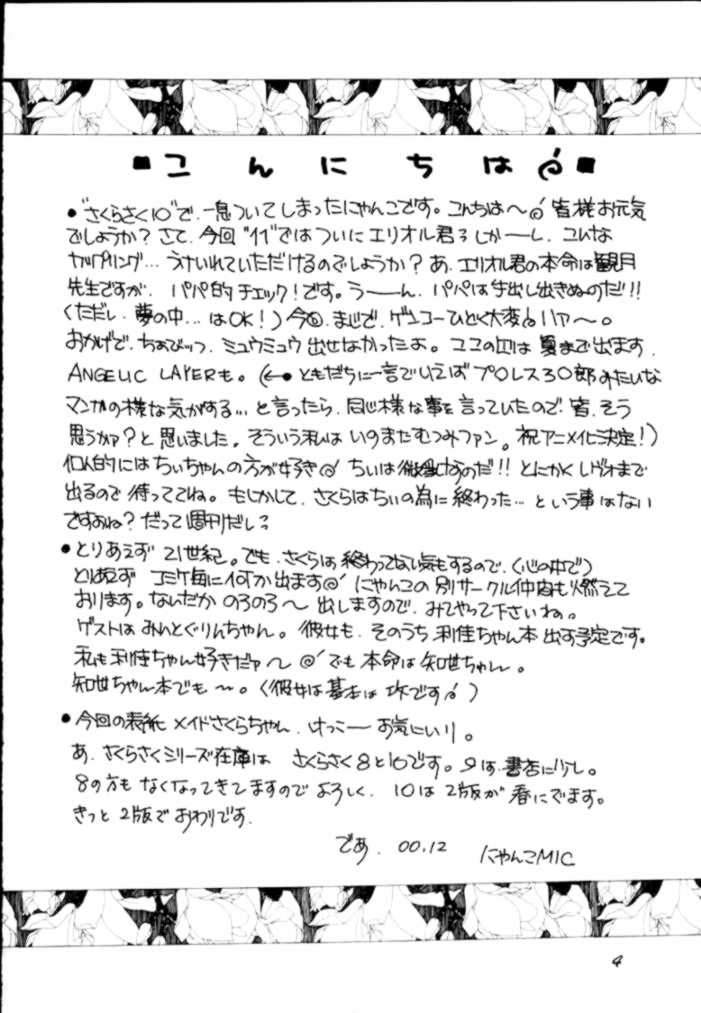 ■こんにちは■
●“さくらさく10”で、一息ついてしまったにゃんこです。こんちは〜 皆様お元気
でしょうか?さて、今回“11”ではついにエリオル君 しかーし、こんな
カップリング…うけいれていただけるのでしょうか?あ、エリオル君の本命は観月
先生ですが、パパ的チェック!です。うーーん、パパは手出し出きぬのだ!!
(ただし、夢の中…はOK!)今回、まじで、ゲンコーひとく大変 ハァ〜。
おかげで、ちょびっツ、ミュウミュウ出せなかったよ。ココの は夏まで出ます、
ANGELIC LAYERも。(←●ともだちに一言でいえばプロレス3○郎みたいな
マンガの様な気がする…と言ったら、同じ様な事を言っていたので、皆、そう
思うかァ?と思いました。そういう私はいのまたむつみファン。祝アニメ化決定!)
個人的にはちぃちゃんの方が好き ちぃは なのだ!!とにかく まで
出るので待っててね。もしかして、さくらはちぃの為に終わった…という事はない
ですよね?だって週刊だし?
●とりあえず21世紀。でも、さくらは終わってない気もするので、(心の中で)
とりあえずコミケ毎に何か出ます にゃんこの別サークル仲間も燃えて
おります。なんだか のろのろ〜出しますので、みてやって下さいね。
ゲストはみんとぐりんちゃん。彼女も、そのうち利佳ちゃん本出す予定です。
私も利佳ちゃん好きだァ〜 でも本命は知世ちゃん。
知世ちゃん本でも〜。(彼女は基本は攻です )
●今回の表紙 メイドさくらちゃん、けっこーお気にいり。
あ、さくらさくシリーズ在庫は さくらさく8と10です。9は書店に少し。
8の方もなくなってきてますのでよろしく、10は2版が春にでます。
きっと2版でおわりです。
であ、00.12 にゃんこMIC
4